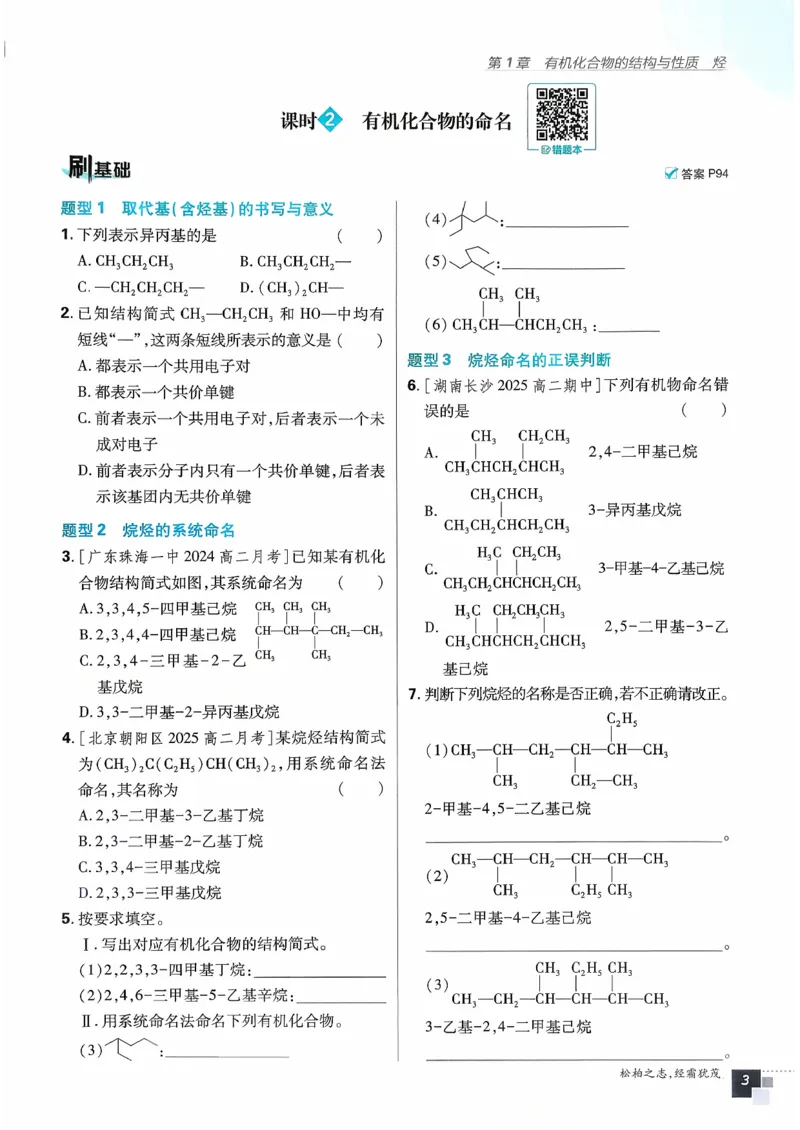 第1章 有机化合物的结构与性质 烃
课时2 有机化合物的命名
错题本
刷基础
答案 P94
题型1 取代基(含烃基)的书写与意义
1.下列表示异丙基的是 ( )
A. CH₃CH₂CH₃ B. CH₃CH₂CH₂—
C. —CH₂CH₂CH₂— D. (CH₃)₂CH—
2.已知结构简式 CH₃—CH₂CH₃ 和 HO—中均有
短线“—”,这两条短线所表示的意义是 ( )
A.都表示一个共用电子对
B.都表示一个共价单键
C.前者表示一个共用电子对,后者表示一个未
成对电子
D.前者表示分子内只有一个共价单键,后者表
示该基团内无共价单键
题型2 烷烃的系统命名
3.[广东珠海一中2024高二月考]已知某有机化
合物结构简式如图,其系统命名为 ( )
A.3,3,4,5-四甲基己烷
B.2,3,4,4-四甲基己烷
C.2,3,4-三甲基-2-乙
基戊烷
D.3,3-二甲基-2-异丙基戊烷
CH₃ CH₃ CH₃
CH—CH—C—CH₂—CH₃
CH₃ CH₃
4.[北京朝阳区2025高二月考]某烷烃结构简式
为(CH₃)₂C(C₂H₅)CH(CH₃)₂,用系统命名法
命名,其名称为 ( )
A.2,3-二甲基-3-乙基丁烷
B.2,3-二甲基-2-乙基丁烷
C.3,3,4-三甲基戊烷
D.2,3,3-三甲基戊烷
5.按要求填空。
Ⅰ.写出对应有机化合物的结构简式。
(1)2,2,3,3-四甲基丁烷:
(2)2,4,6-三甲基-5-乙基辛烷:
Ⅱ.用系统命名法命名下列有机化合物。
(3) :
(4) :
(5) :
CH₃ CH₃
(6) CH₃CH—CHCH₂CH₃ :
题型3 烷烃命名的正误判断
6.[湖南长沙2025高二期中]下列有机物命名错
误的是 ( )
CH₃ CH₂CH₃
A. 2,4-二甲基己烷
CH₃CHCH₂CHCH₃
CH₃CHCH₃
B. 3-异丙基戊烷
CH₃CH₂CHCH₂CH₃
H₃C CH₂CH₃
C. 3-甲基-4-乙基己烷
CH₃CH₂CHCHCH₂CH₃
H₃C CH₂CH₃CH₃
D. 2,5-二甲基-3-乙
CH₃CHCHCH₂CHCH₃
基己烷
7.判断下列烷烃的名称是否正确,若不正确请改正。
C₂H₅
(1)CH₃—CH—CH₂—CH—CH—CH₃
CH₃ CH₂—CH₃
2-甲基-4,5-二乙基己烷
。
CH₃—CH—CH₂—CH—CH—CH₃
(2)
CH₃ C₂H₅ CH₃
2,5-二甲基-4-乙基己烷
。
CH₃ C₂H₅ CH₃
(3)
CH₃—CH₂—CH—CH—CH—CH₃
3-乙基-2,4-二甲基己烷
。
松柏之志,经霜犹茂
3